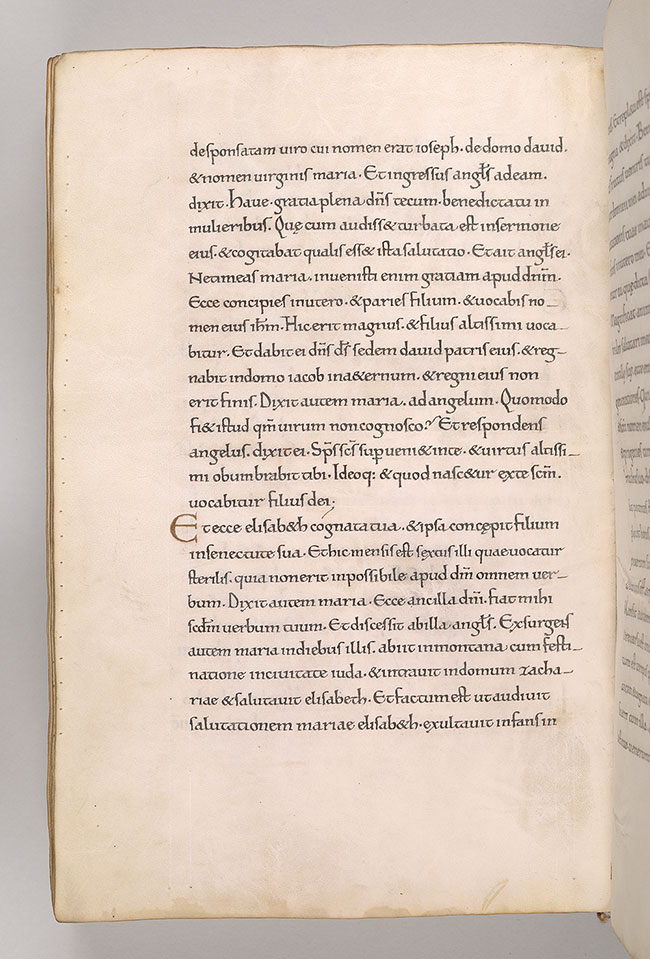 desponsatam uiro cui nomen erat ioseph. de domo dauid.
& nomen uirginis maria. Et ingressus angls ad eam.
dixit. Haue gratia plena dns tecum. benedicta tu in
mulieribus. Quę cum audiss& turbata est in sermone
eius. & cogitabat qualis ess& ista salutatio. Et ait angls ei.
Ne timeas maria. inuenisti enim gratiam apud dnm.
Ecce concipies in utero. & paries filium. & uocabis no_
men eius ihm. Hic erit magnus. & filius altissimi uoca_
bitur. Et dabit ei dns ds sedem dauid patris eius. & reg_
nabit in domo iacob in a&ernum. & regni eius non
erit finis. Dixit autem maria. ad angelum. Quomodo
fi& istud qm uirum non cognosco? Et respondens
angelus. dixit ei. Sps scs sup ueni& in te. & uirtus altissi_
mi obumbrabit tibi. Ideoq: & quod nasc&ur ex te scm.
uocabitur filius dei.
Et ecce elisab&h cognata tua. & ipsa concępit filium
in senectute sua. Et hic mensis est sextus illi quae uocatur
sterilis. quia non erit inpossibile apud dm omnem uer_
bum. Dixit autem maria. Ecce ancilla dni. fiat mihi
scdm uerbum tuum. Et discessit ab illa angls. Exsurgens
autem maria in diebus illis. abiit in montana cum festi_
natione in ciuitate iuda. & intrauit in domum zacha_
riae & salutauit elisabeth. Et factum est ut audiuit
salutationem mariae elisab&h. exultauit infans in